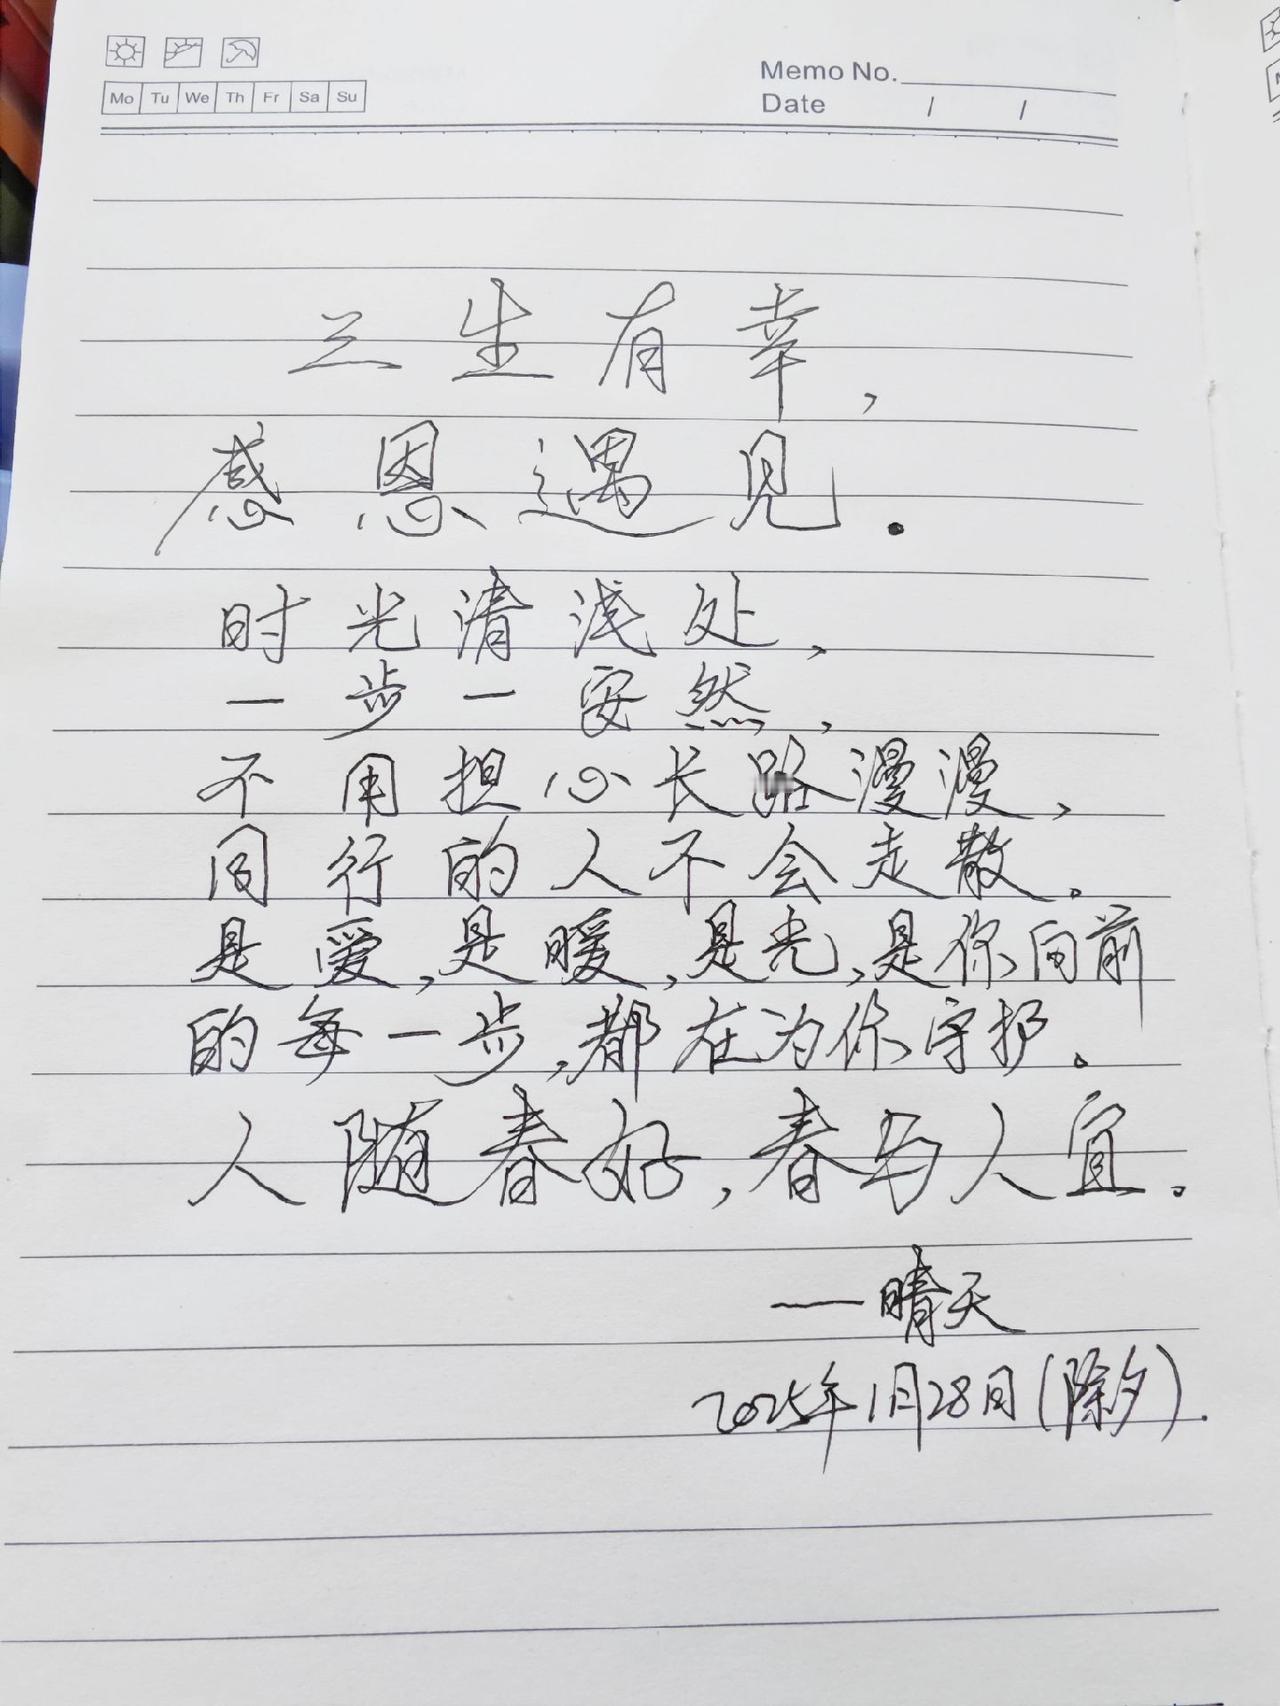 Memo No.
Mo Tu We Th Fr Sa Su
Date / /
三生有幸,
感恩遇见.
时光清浅处,
一步一安然,
不用担心长路漫漫,
同行的人不会走散。
是爱,是暖,是光,是你向前
的每一步,都在为你守护。
人随春好,春与人宜。
——晴天
2025年1月28日(除夕).